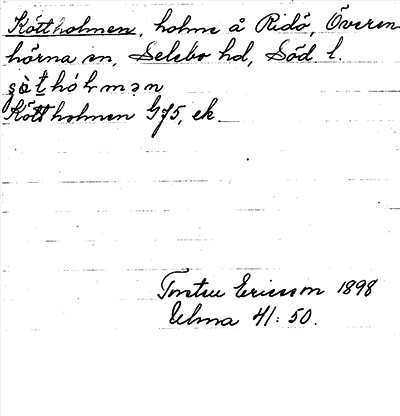 Köttholmen, holme å Ridö, Överen
hörna sn, Selebo hd, Söd l.
Köttholmen G75, ek
Torsten Ericsson 1898
Uhma 41: 50.